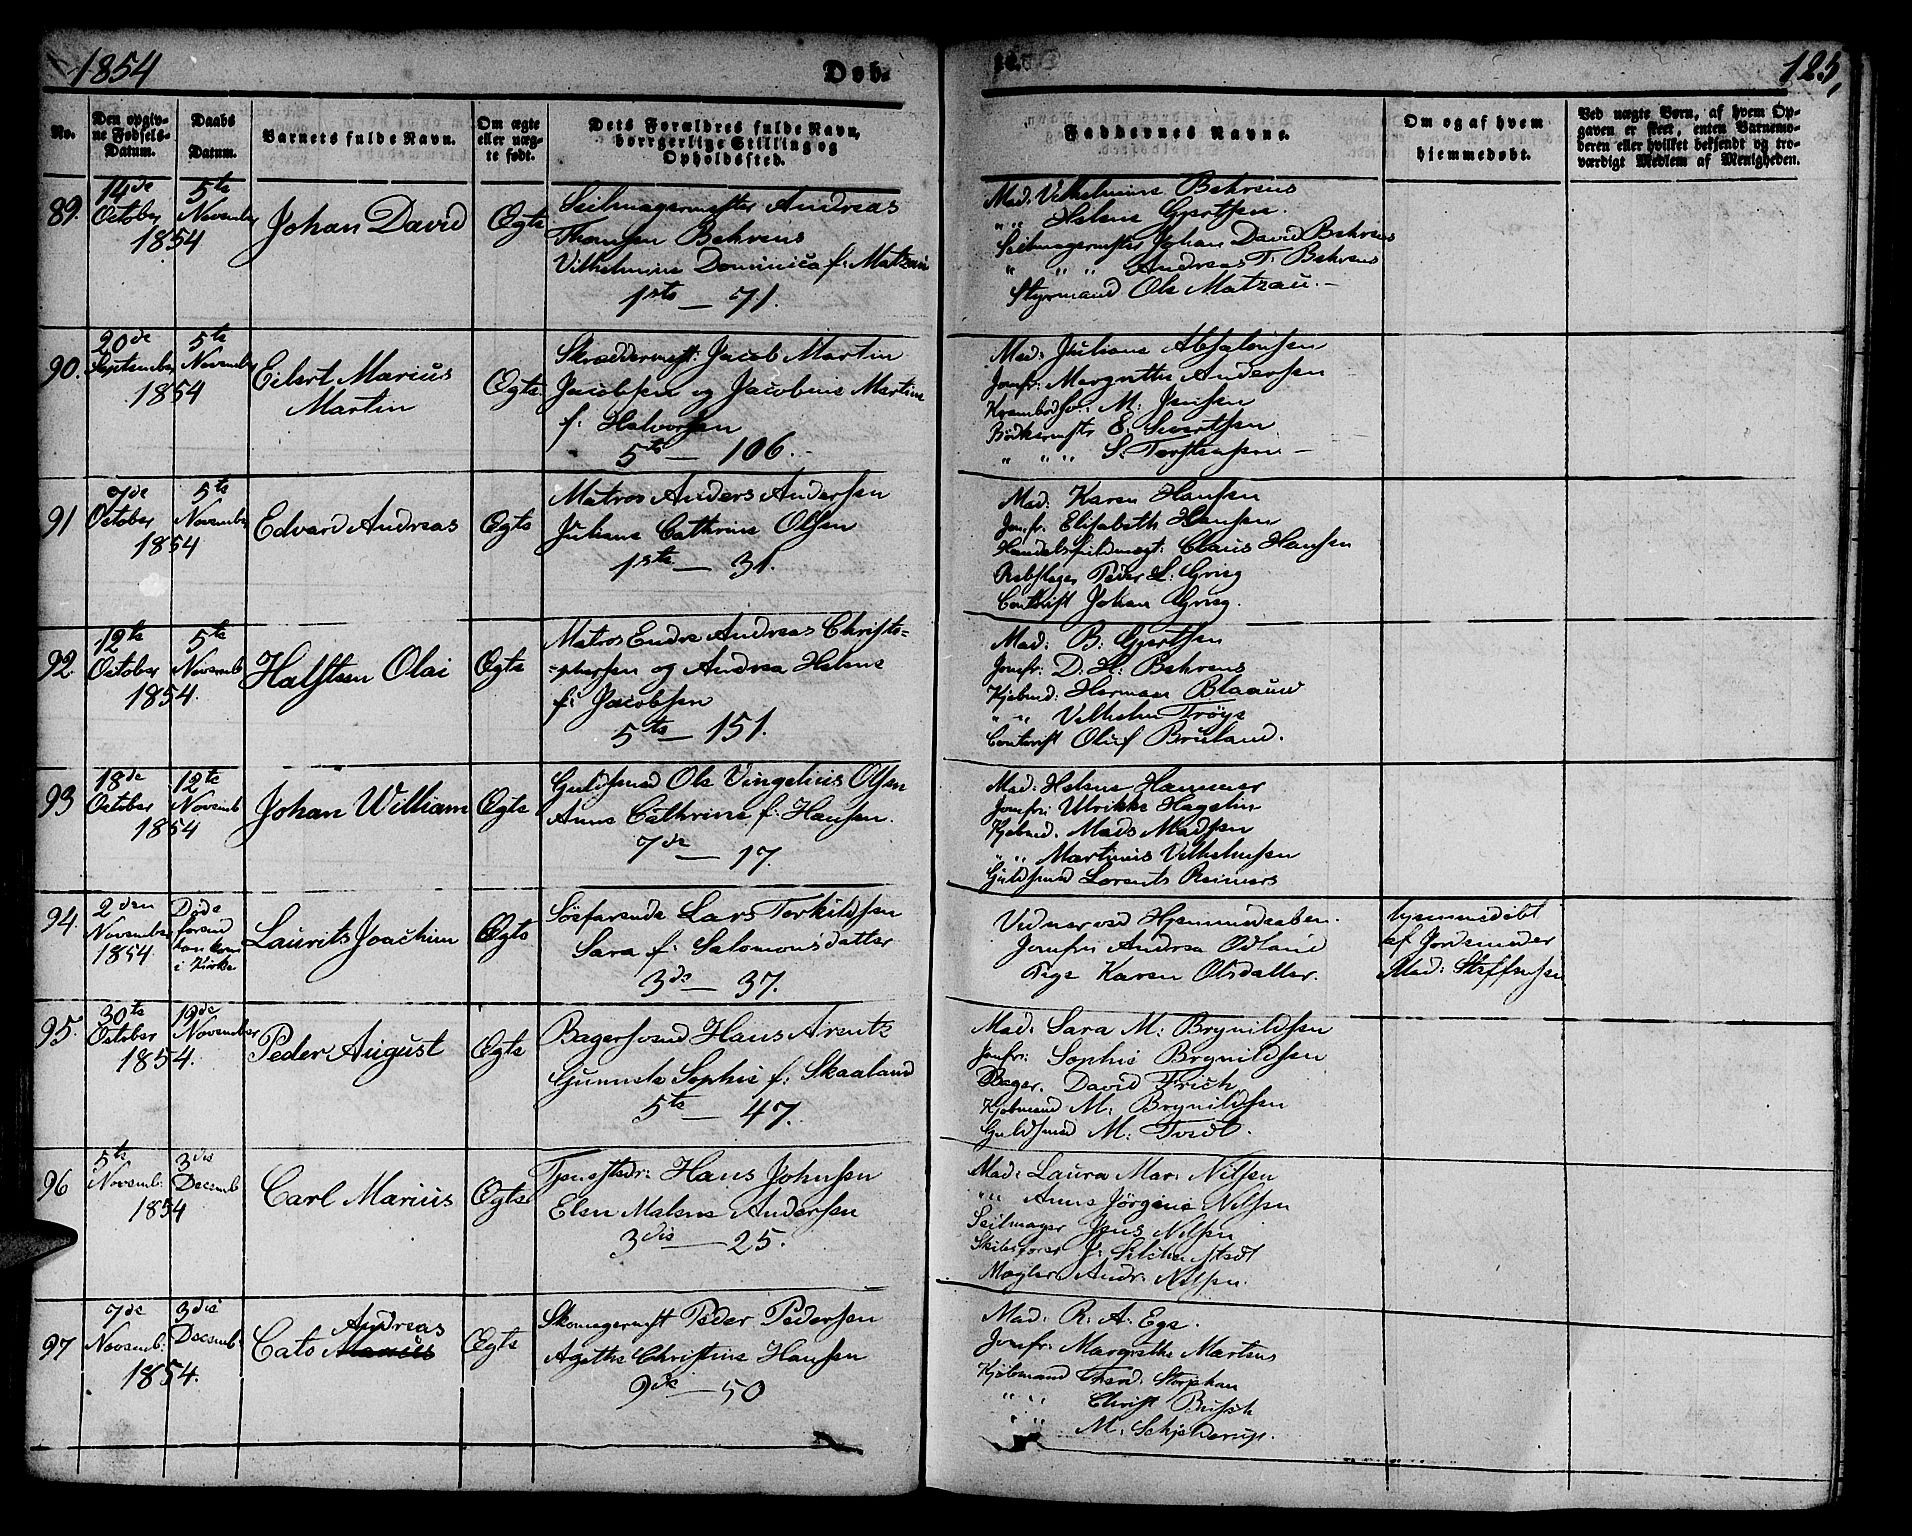 1854
Døb-
te.
125,
No.
Den opgiv-
ne Fødsels-
Datum.
Daabs
Datum.
Barnets fulde Navn.
Om ægte
eller uæg-
te født.
Dets Forældres fulde Navn,
borgerlige Stilling og
Opholdssted.
Faddernes Navne.
Om og af hvem
hjemmedøbt.
Ved uægte Børn, af hvem Op-
gaven er skeet, enten Barnemo-
deren eller hvilket bekjendt og tro-
værdigt Medlem af Menigheden.
89.
14de
October
1854
5te
November
Johan David
Ægte
Seilmagermester Andreas
Thomsen Behrens
Vilhelmine Dominica f: Matzau
1ste — 71.
Mad: Vilhelmine Behrens
" " Helene Gjertsen.
Seilmagermester Johan David Behrens
" " " Andreas T. Behrens
Styrmand Ole Matzau. —
90.
20de
September
1854
5te
November
Eilert Marius
Martin
Ægte
Skræddermest: Jacob Martin
Jacobsen og Jacobine Martine
f: Halvorsen
5te — 106.
Mad: Juliane Absalonsen
Jomfr: Margrethe Andersen
M: Jensen
Bødkermester E. Sivertsen
" " " S. Torstensen —
91
7de
October
1854
5te
November
Edvard Andreas
Ægte
Matros Anders Andersen
Juliane Cathrine Olsen
1ste — 31.
Mad: Karen Hansen
Jomfr: Elisabeth Hansen
Handelsfuldmægt: Claus Hansen
Rebslager Peder L. Grieg
Contorist Johan Grieg.
92.
12te
October
1854.
5te
Novemb
Halsteen Olai
Ægte
Matros Endre Andreas Christo-
-phersen og Andrea Helene
f: Jacobsen
5te — 151.
Mad: B. Gjertsen
Jomfr: D. H: Behrens
Kjøbmd: Herman Blaauw
" " Vilhelm Trøye
Contorist Oluf Bruland.
93
18de
October
1854
12te
Novemb
Johan William
Ægte
Guldsmed Ole Vingelius Olsen
Anne Cathrine f: Hansen.
7de — 17.
Mad: Helene Hammer
Jomfr: Ulrikke Hagelin
Kjøbmd. Mads Madsen
" " Martinus Vilhelmsen
Guldsmed Lorents Reimers
94.
2den
November
1854.
Døde
forend
han kom
i Kirke
Laurits Joachim
Ægte
Søefarende Lars Terkildsen
Sara f: Salomonsdatter
3de — 37.
Vidner ved Hjemmedaaben.
Jomfr: Andrea Odland
Pige Karen Olsdatter.
hjemmedøbt
af Jordemoder
Mad: Steffensen
95.
30te
October
1854.
19de
November
Peder August
Ægte
Bagersvend Hans Arentz
Gunnele Sophie f: Skaaland
5te — 47.
Mad. Sara M: Brynildsen
Jomfr: Sophie Brynildsen
Bager. David Frich
Kjøbmand M: Brynildsen
Guldsmed M: Tvedt.
96
5te
Novemb:
1854
3die
Decemb
Carl Marius
Ægte
Tjenestedr: Hans Johnsen
Elen Malene Andersen
3die — 25.
Mad: Laura Mar: Nilsen
" " Anne Jørgine Nilsen
Seilmager Jens Nilsen
Mægler Andr: Nilsen.
97
7de
Novemb:
1854.
3die
Decemb:
Andreas
Cato Marius
Ægte
Skomagermest Peder Pedersen
Agathe Christine Hansen
9de — 50
Mad: R. A. Ege.
Jomfr: Margrethe Martens
Kjøbmand Chrd: Stephan
" " Christ Busch
" " M. Schjelderup.